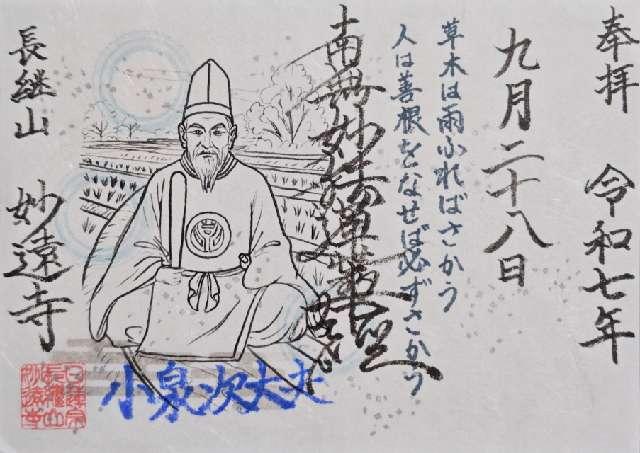 奉拝
令和七年
九月二十八日
草木は雨ふればさかう
人は善根をなせば必ずさかう
南無妙法蓮華経
小泉次大夫
長継山
妙遠寺
日蓮宗
長継山
妙遠寺